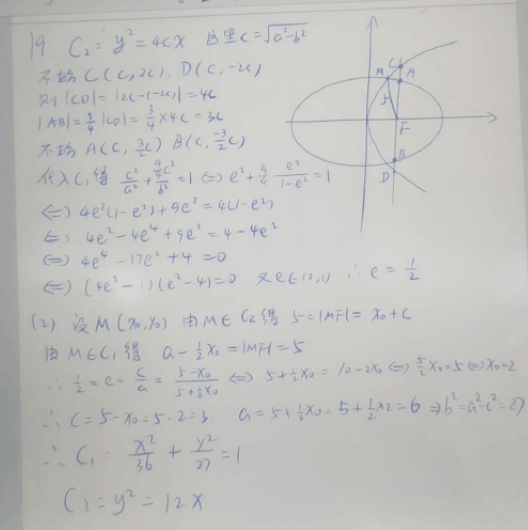 19. C₂: y²=4cx 这里c=√(a²-b²)
不妨 C(c,2c). D(c,-2c)
则|CD|=|2c-(-2c)|=4c
|AB|=3/4|CD|=3/4×4c=3c
不妨 A(c, 3/2c) B(c, -3/2c)
代入C₁得 c²/a² + (9/4c²)/b² =1 ⇔ e²+9/4 e²/(1-e²)=1
⇔ 4e²(1-e²)+9e²=4(1-e²)
⇔ 4e²-4e⁴+9e²=4-4e²
⇔ 4e⁴-17e²+4=0
⇔ (4e²-1)(e²-4)=0 又e∈(0,1) ∴e=1/2
(2) 设M(x₀,y₀) 由M∈C₂得 5=|MF|=x₀+c
由M∈C₁得 a-1/2x₀=|MF|=5
∴ 1/2=e=c/a=(5-x₀)/(5+1/2x₀) ⇔ 5+1/2x₀=10-2x₀ ⇔ 5/2x₀=5 ⇔ x₀=2
∴ c=5-x₀=5-2=3. a=5+1/2x₀=5+1/2×2=6 ⇒ b²=a²-c²=27
∴ C₁: x²/36 + y²/27 =1
C₂=y²=12x
C
M
A
5
F
B
D